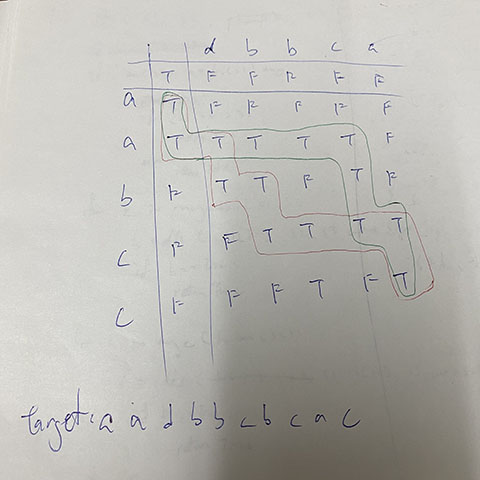 d b b c a
T F F F F F
a T F F F F F
a T T T T T F
b F T T F T F
c F F T T T T
c F F F T F T
target: a a d b b c b c a c